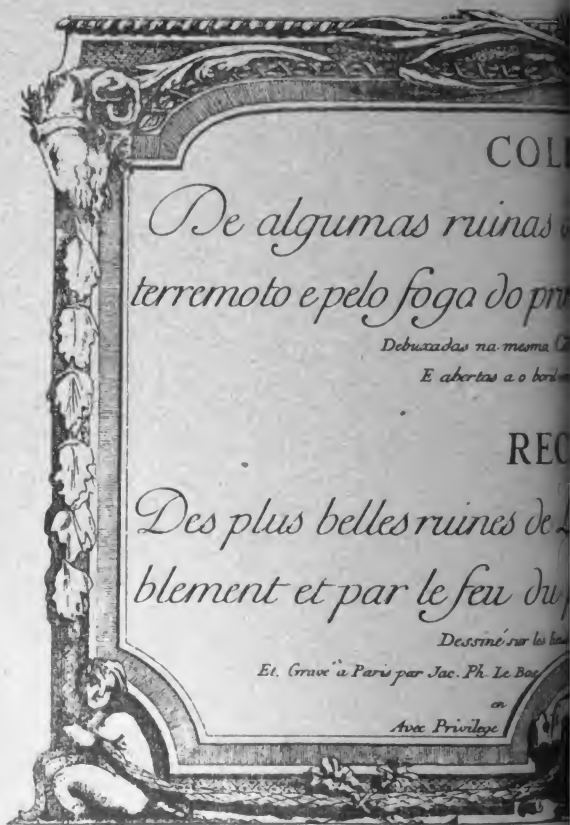 COLL
De algumas ruinas
terremoto e pelo foga do pri
Debuxadas na mesma
E abertas a o boril
REC
Des plus belles ruines de
blement et par le feu du
Dessiné sur les lieu
Et. Gravé à Paris par Jac. Ph. Le Bas
en
Avec Privilege